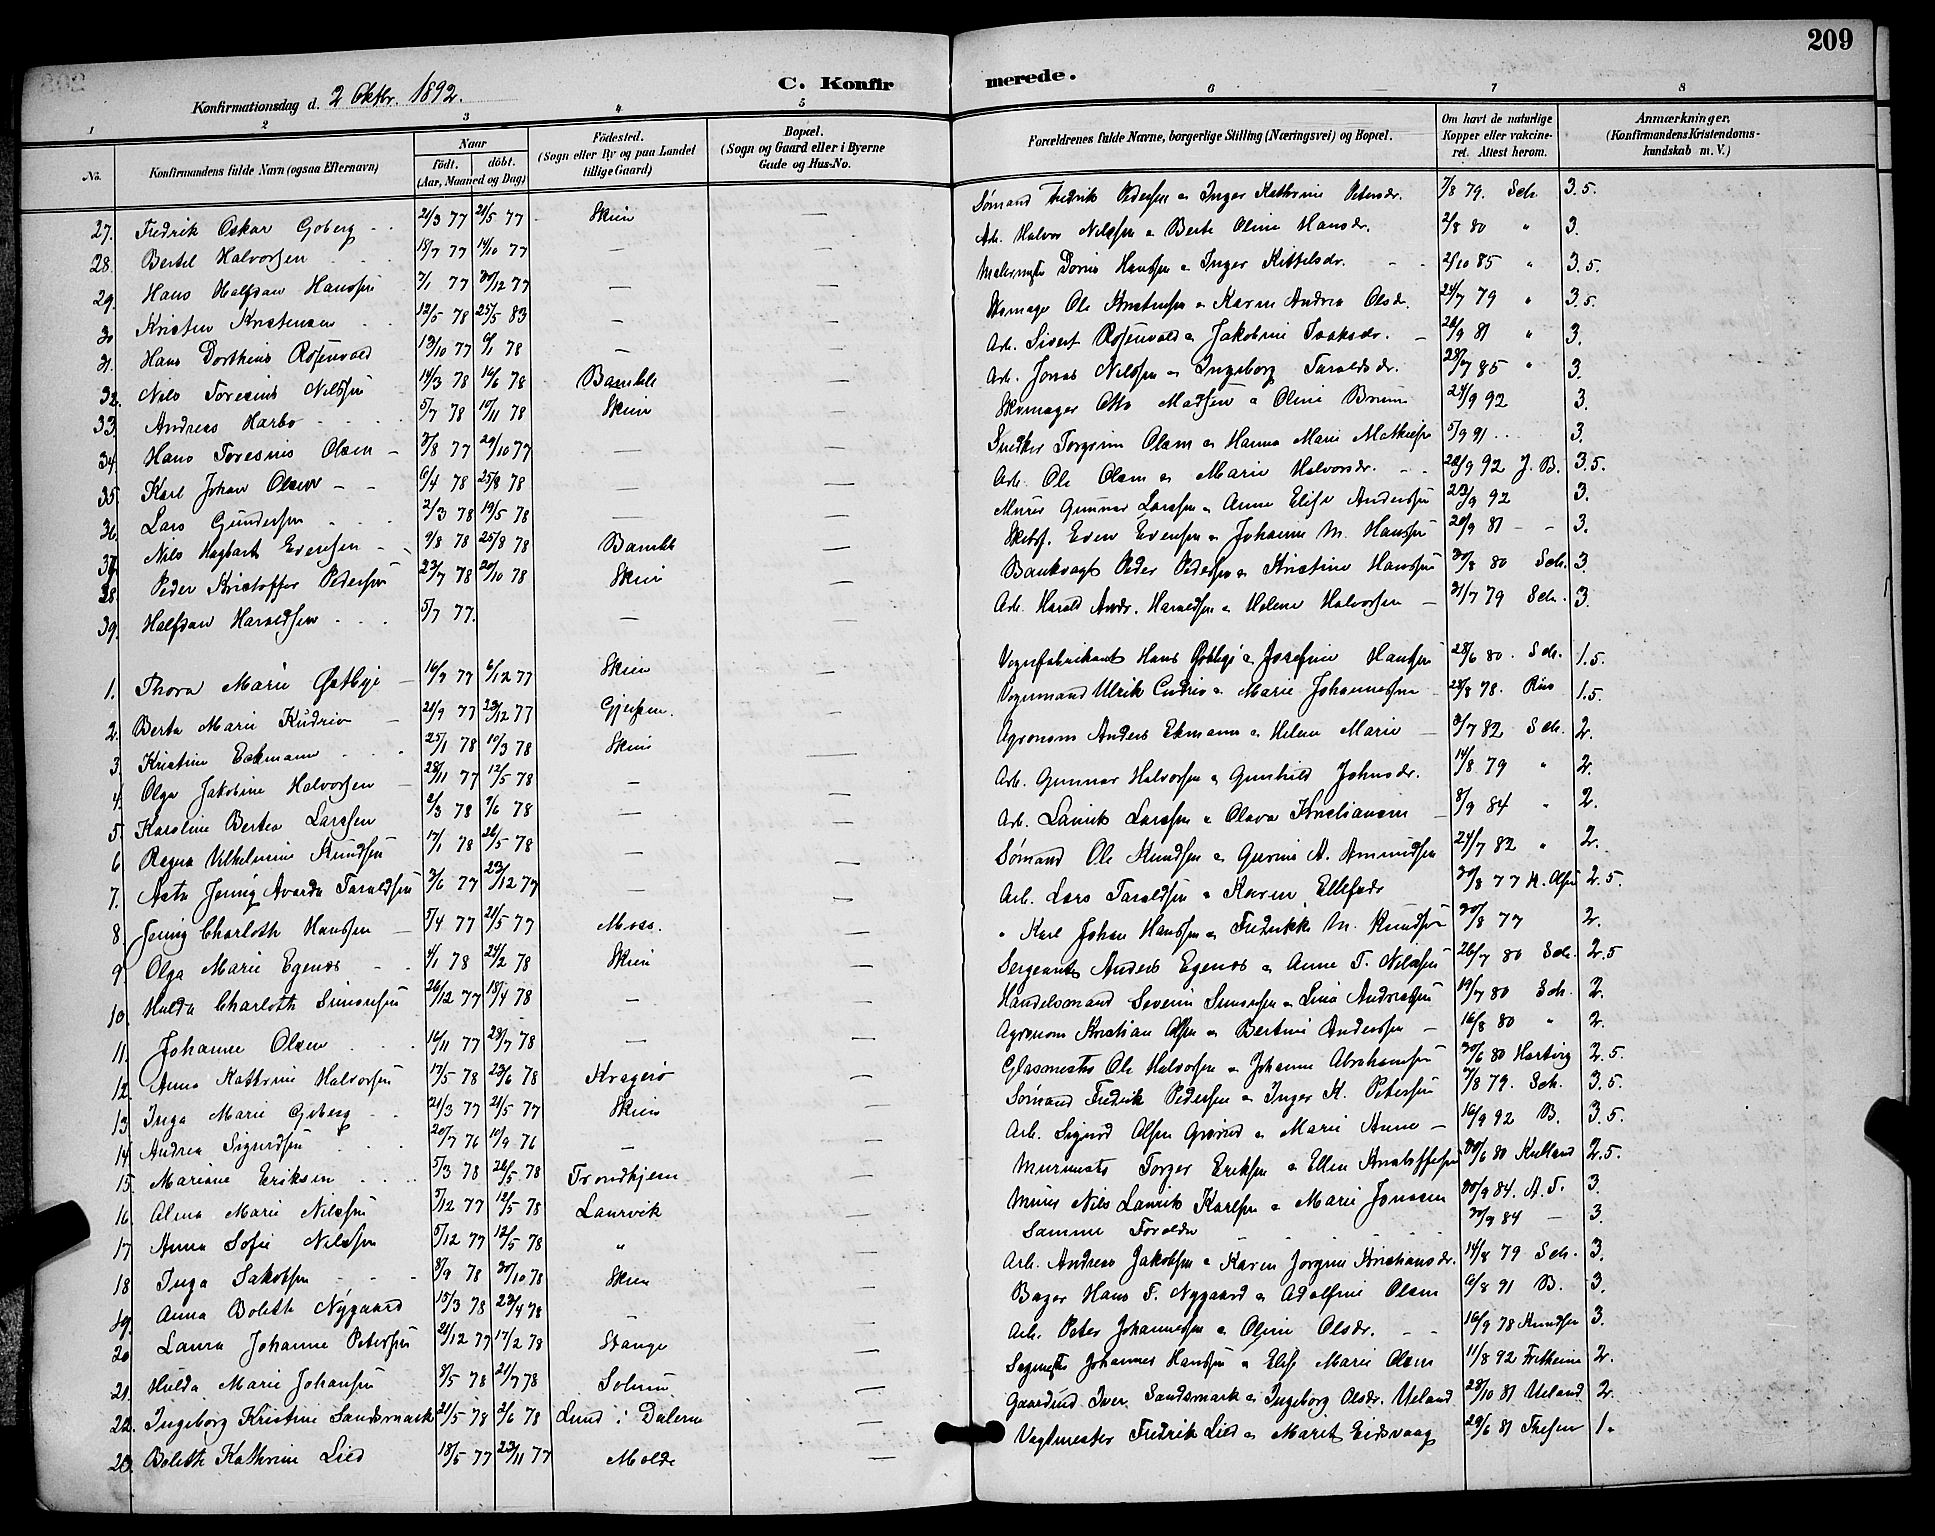 209
C. Konfirmerede.
Konfirmationsdag d. 2 Oktbr. 1892.
1 2 3 4 5 6 7 8
No. Konfirmandens fulde Navn (ogsaa Efternavn) Naar født. døbt. (Aar, Maaned og Dag) Fødested. (Sogn eller By og paa Landet tillige Gaard) Bopæl. (Sogn og Gaard eller i Byerne Gade og Hus-No. Forældrenes fulde Navne, borgerlige Stilling (Næringsvei) og Bopæl. Om havt de naturlige Kopper eller vakcineret. Attest herom. Anmærkninger. (Konfirmandens Kristendomskundskab m. V.)
27. Fredrik Oskar Goberg 21/3 77 21/5 77 Skien — Sømand Fredrik Pedersen & Inger Kathrine Petersdr. 7/8 79. Sch. 3.5.
28. Bertel Halvorsen 15/7 77 14/10 77 — — Arb. Halvor Nilssen & Berte Oline Hansdr. 2/8 80 " 3.
29. Hans Halfdan Hanssen 3/1 77 30/12 77 — — Malermester Hanssen & Inger Kittelsdr. 2/10 85 " 3.5.
30 Kristen Kristensen 12/5 78 25/5 83 — — Skomager Ole Kristensen & Karen Andrea Olsdr. 24/7 79 " 3.5.
31. Hans Dortheus Rosenvold 13/10 77 6/1 78 — — Arb. Sivert Rosenvold & Jakobine Isaksdr. 26/9 81 " 3.
32. Nils Toresius Nilssen 14/3 78 16/6 78 Bamble — Arb. Jonas Nilssen & Ingeborg Taraldsdr. 28/7 85 " 3.
33. Andreas Harbo 5/7 78 10/11 78 Skien — Skomager Otto Madsen & Oline Bruun 24/9 92 3.
34. Hans Toresius Olsen 3/8 77 29/10 77 — — Snedker Torgrim Olsen & Hanna Marie Mathisen 5/9 91 3.
35. Karl Johan Olsen 6/4 78 25/8 78 — — Arb. Ole Olsen & Marie Halvorsdr. 28/9 92 J. B. 3.5.
36. Lars Gundersen 2/3 78 19/5 78 — — Murer Gunnar Larssen & Anne Elise Anderssen 23/9 92 3.
37. Nils Hagbart Evensen 9/8 78 25/8 78 Bamble — Skibsf. Even Evensen & Johanne M. Hanssen 20/9 81 3.
38. Peder Kristoffer Pedersen 22/7 78 20/10 78 Skien — Bankvagt Peder Pedersen & Kristine Hanssen 30/8 80 Sch. 3.
39. Halfdan Haraldsen 5/7 77. — — Arb. Harald Andr. Haraldsen & Helene Halvorsen 31/7 79 Sch. 3.
1. Thora Marie Østbye 16/9 77 6/12 77 Skien — Vognfabrikant Hans & Josefine Hanssen 28/6 80. Sch. 1.5.
2. Berta Marie Kudrio 21/9 77 23/12 77 Gjerpen. — Vognmand Ulrik Cudrio & Marie Johannessen 28/8 78. 1.5.
3. Kristine Eckmann 25/1 78 10/3 78 Skien — Agronom Anders Ekmann & Helene Marie 31/7 82 Sch. 2.
4. Olga Jakobine Halvorsen 28/11 77 12/5 78 — — Arb. Gunnar Halvorsen & Gunhild Johnsdr. 14/8 79 " 2.
5. Karoline Bertea Larssen 2/3 78 9/6 78 — — Arb. Laurits Larssen & Olava Kristiansen 8/9 84 " 2.
6 Ragna Vilhelmine Knudsen 17/1 78 26/5 78 — — Sømand Ole Knudsen & Gurine A. Amundsen 24/7 82 " 2.
7. Asta Jenny Avarda Taraldsen 3/6 77 23/12 77 — — Arb. Lars Taraldsen & Karen Ellefsdr 30/8 77 2.5.
8. Jenny Charloth Hanssen 5/4 77 21/5 77 Moss. — " Karl Johan Hanssen & Fredrikke M. Knudsen 30/8 77 2.
9. Olga Marie Egenes 4/1 78 24/2 78 Skien — Sergeant Anders Egenes & Anne T. Nilssen 26/7 80 Sch. 2.5
10. Hulda Charloth Simonsen 26/12 77 18/4 78 — — Handelsmand Severin Simonsen & Lina Andreassen 19/7 80 Sch. 2.
11. Johanne Olsen 16/11 77 28/7 78 — — Agronom Kristian Olsen & Bertine Anderssen 16/8 80 " 2.
12. Anna Kathrine Halvorsen 17/5 78 23/6 78 Kragerø — Glasmester Ole Halvorsen & Johanne Abrahamsen 30/6 80 Hartvig 2.5.
13. Inga Marie Goberg 21/3 77 21/5 77 Skien — Sømand Fredrik Pedersen & Inger K. Petersen 7/8 79. Sch. 3.5.
14. Andrea Sigurdsen 20/7 76 10/9 76 — — Arb. Sigurd Olsen & Marie Anne 16/9 92 B. 3.5.
15. Mariane Eriksen 5/3 78 26/5 78 Trondhjem — Murmester Torger Eriksen & Ellen Kristoffersen 30/6 80 2.5.
16. Alma Marie Nilssen 5/12 77 12/5 78 Laurvik — Murer Nils Laurits Karlsen & Marie Jonssen 30/9 84. A. T. 3.
17. Anna Sofie Nilssen 5/12 77 12/5 78 " — Samme Forældre 30/9 84 — 3.
18 Inga Jakobsen 8/9 78 30/10 78 Skien — Arb. Andreas Jakobsen & Karen Jørgine Kristiansdr. 14/8 79 Sch. 3.
19. Anna Boleth Nygaard 15/3 78 22/4 78 — — Bager Hans F. Nygaard & Adolfine Olsen 6/8 91 B. 3.
20 Laura Johanne Petersen 21/12 77 17/2 78 Stange — Arb. Peter Johannessen & Oline Olsdr. 16/9 78 Knudsen 3.
21. Hulda Marie Johansen 8/5 78 21/7 78 Solum — Sagmester Johannes Hanssen & Elise Marie Olsen 11/8 92 Fretheim 2.
22. Ingeborg Kristine Sandsmark 21/5 78 2/6 78 Lund i Dalerne — Gaardmd Iver Sandsmark & Ingeborg Olsdr. Ueland 28/10 81 Ueland 2.
23. Boleth Kathrine Lied 18/5 77 22/11 77 Molde — Vagtmester Fredrik Lied & Marit Eidsvaag 29/6 81 Thesen 1.